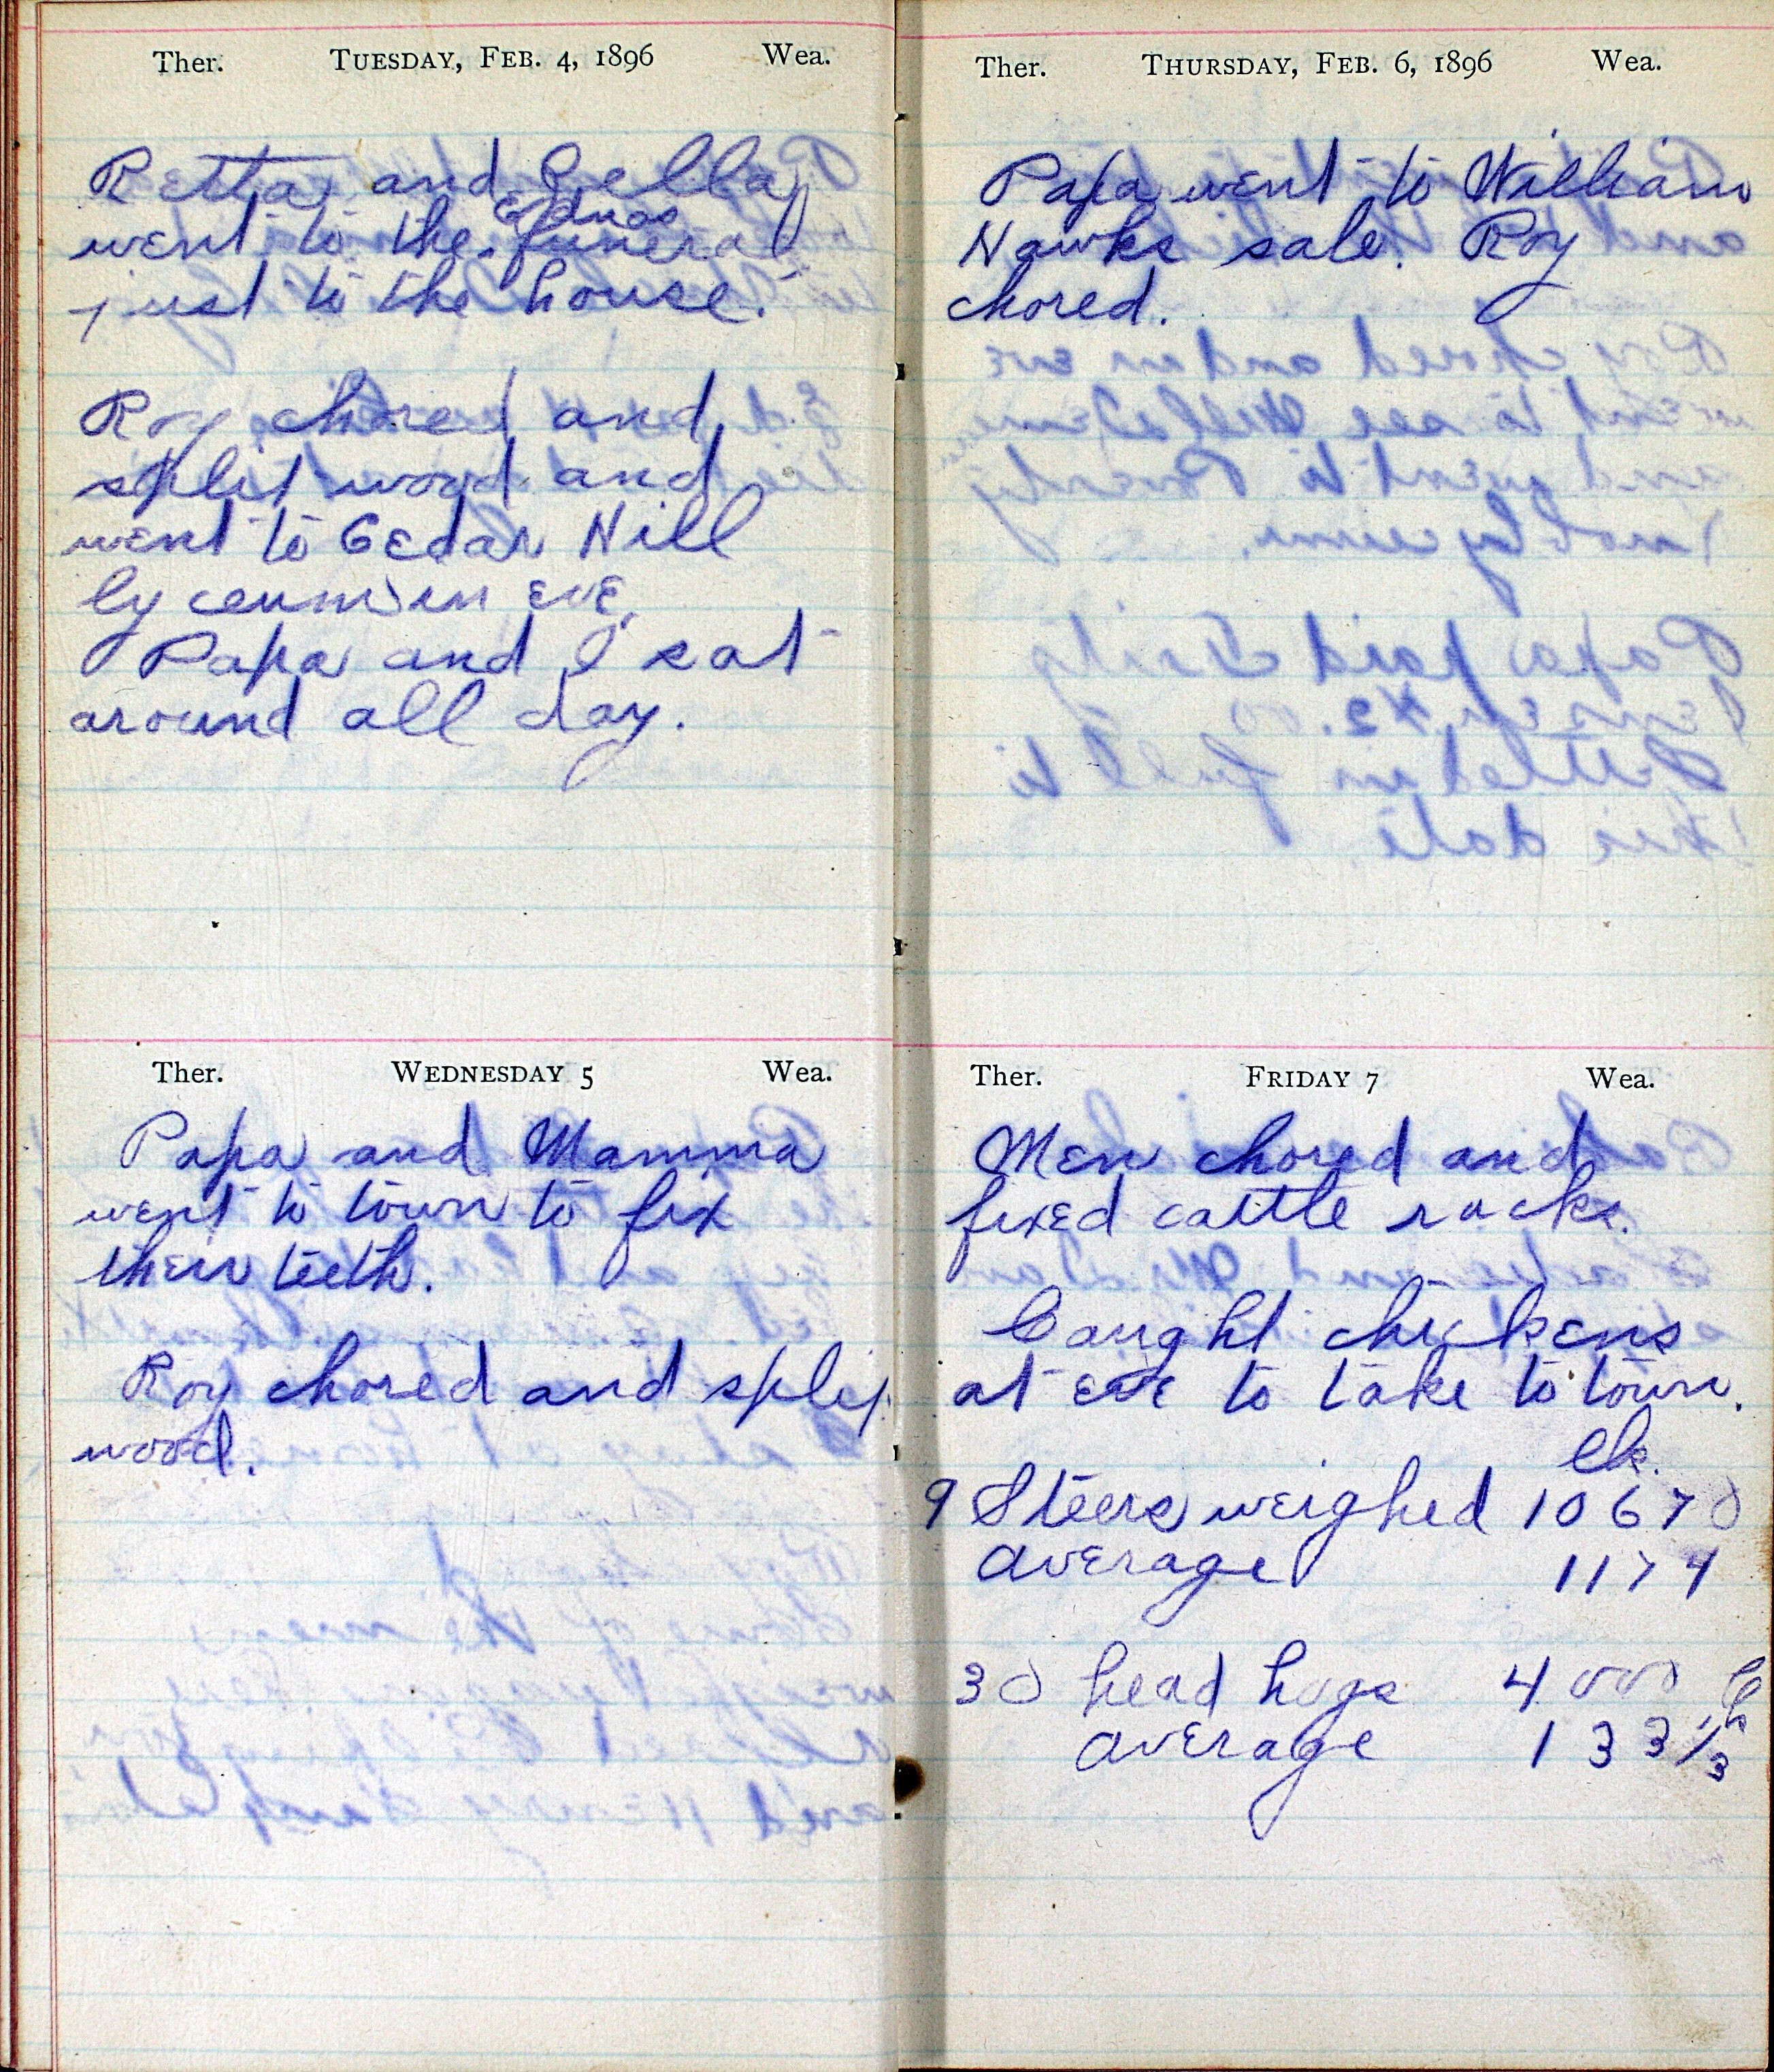 Ther. TUESDAY, FEB. 4, 1896 Wea.
Retta and Lella
Ednas
went to the funeral
just to the house.
Roy chored and
split wood and
went to Cedar Hill
lyceum in eve.
Papa and I sat
around all day.
Ther. WEDNESDAY 5 Wea.
Papa and Mamma
went to town to fix
their teeth.
Roy chored and split
wood.
Ther. THURSDAY, FEB. 6, 1896 Wea.
Papa went to William
Hawks sale. Roy
chored.
Ther. FRIDAY 7 Wea.
Men chored and
fixed cattle racks.
Caught chickens
at eve to take to town.
lb.
9 Steers weighed 10670
average 1174
30 head hogs 4000 lb
average 133 1/3